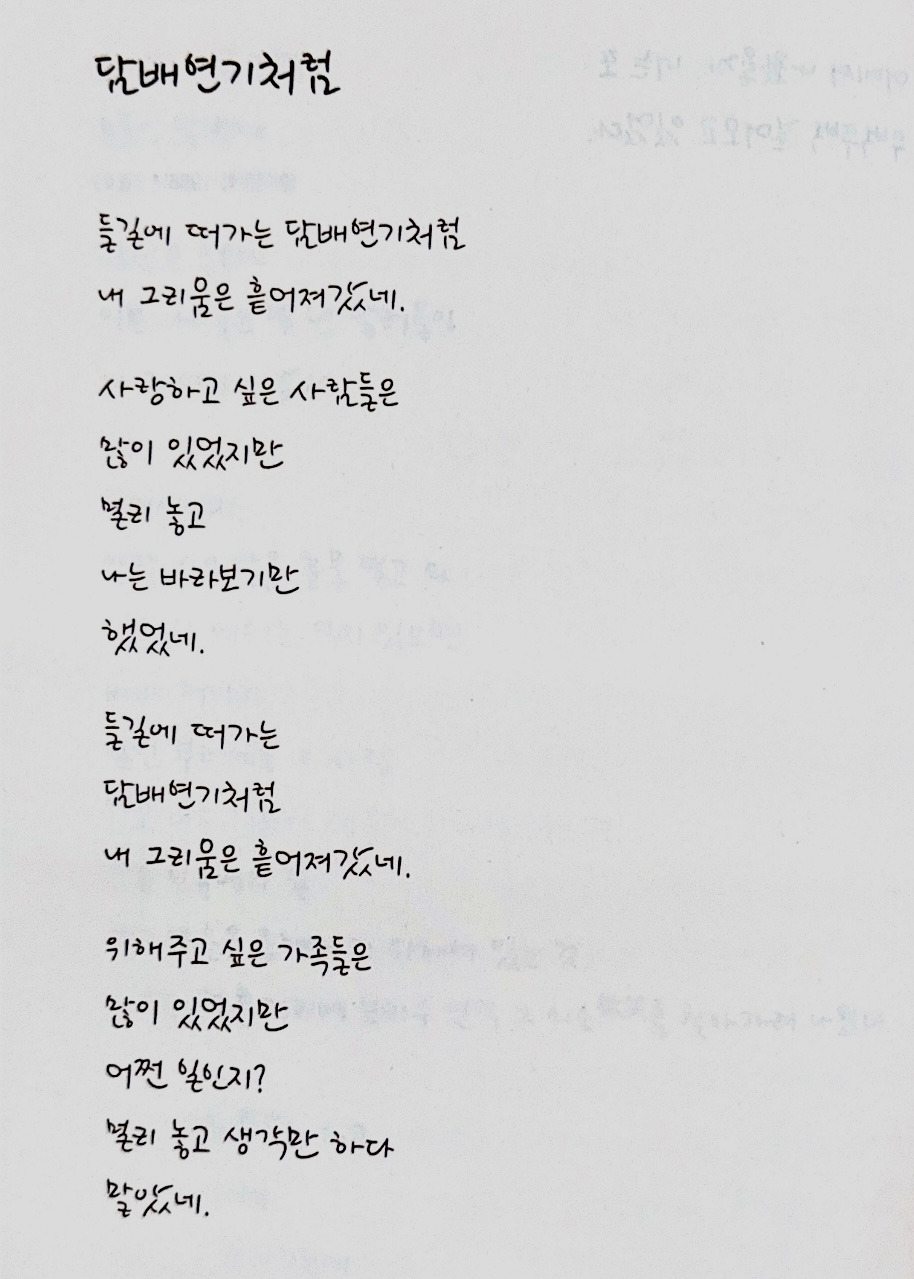 담배연기처럼
들길에 떠가는 담배연기처럼
내 그리움은 흩어져갔네.
사랑하고 싶은 사람들은
많이 있었지만
멀리 놓고
나는 바라보기만
했었네.
들길에 떠가는
담배연기처럼
내 그리움은 흩어져갔네.
위해주고 싶은 가족들은
많이 있었지만
어쩐 일인지?
멀리 놓고 생각만 하다
말았네.